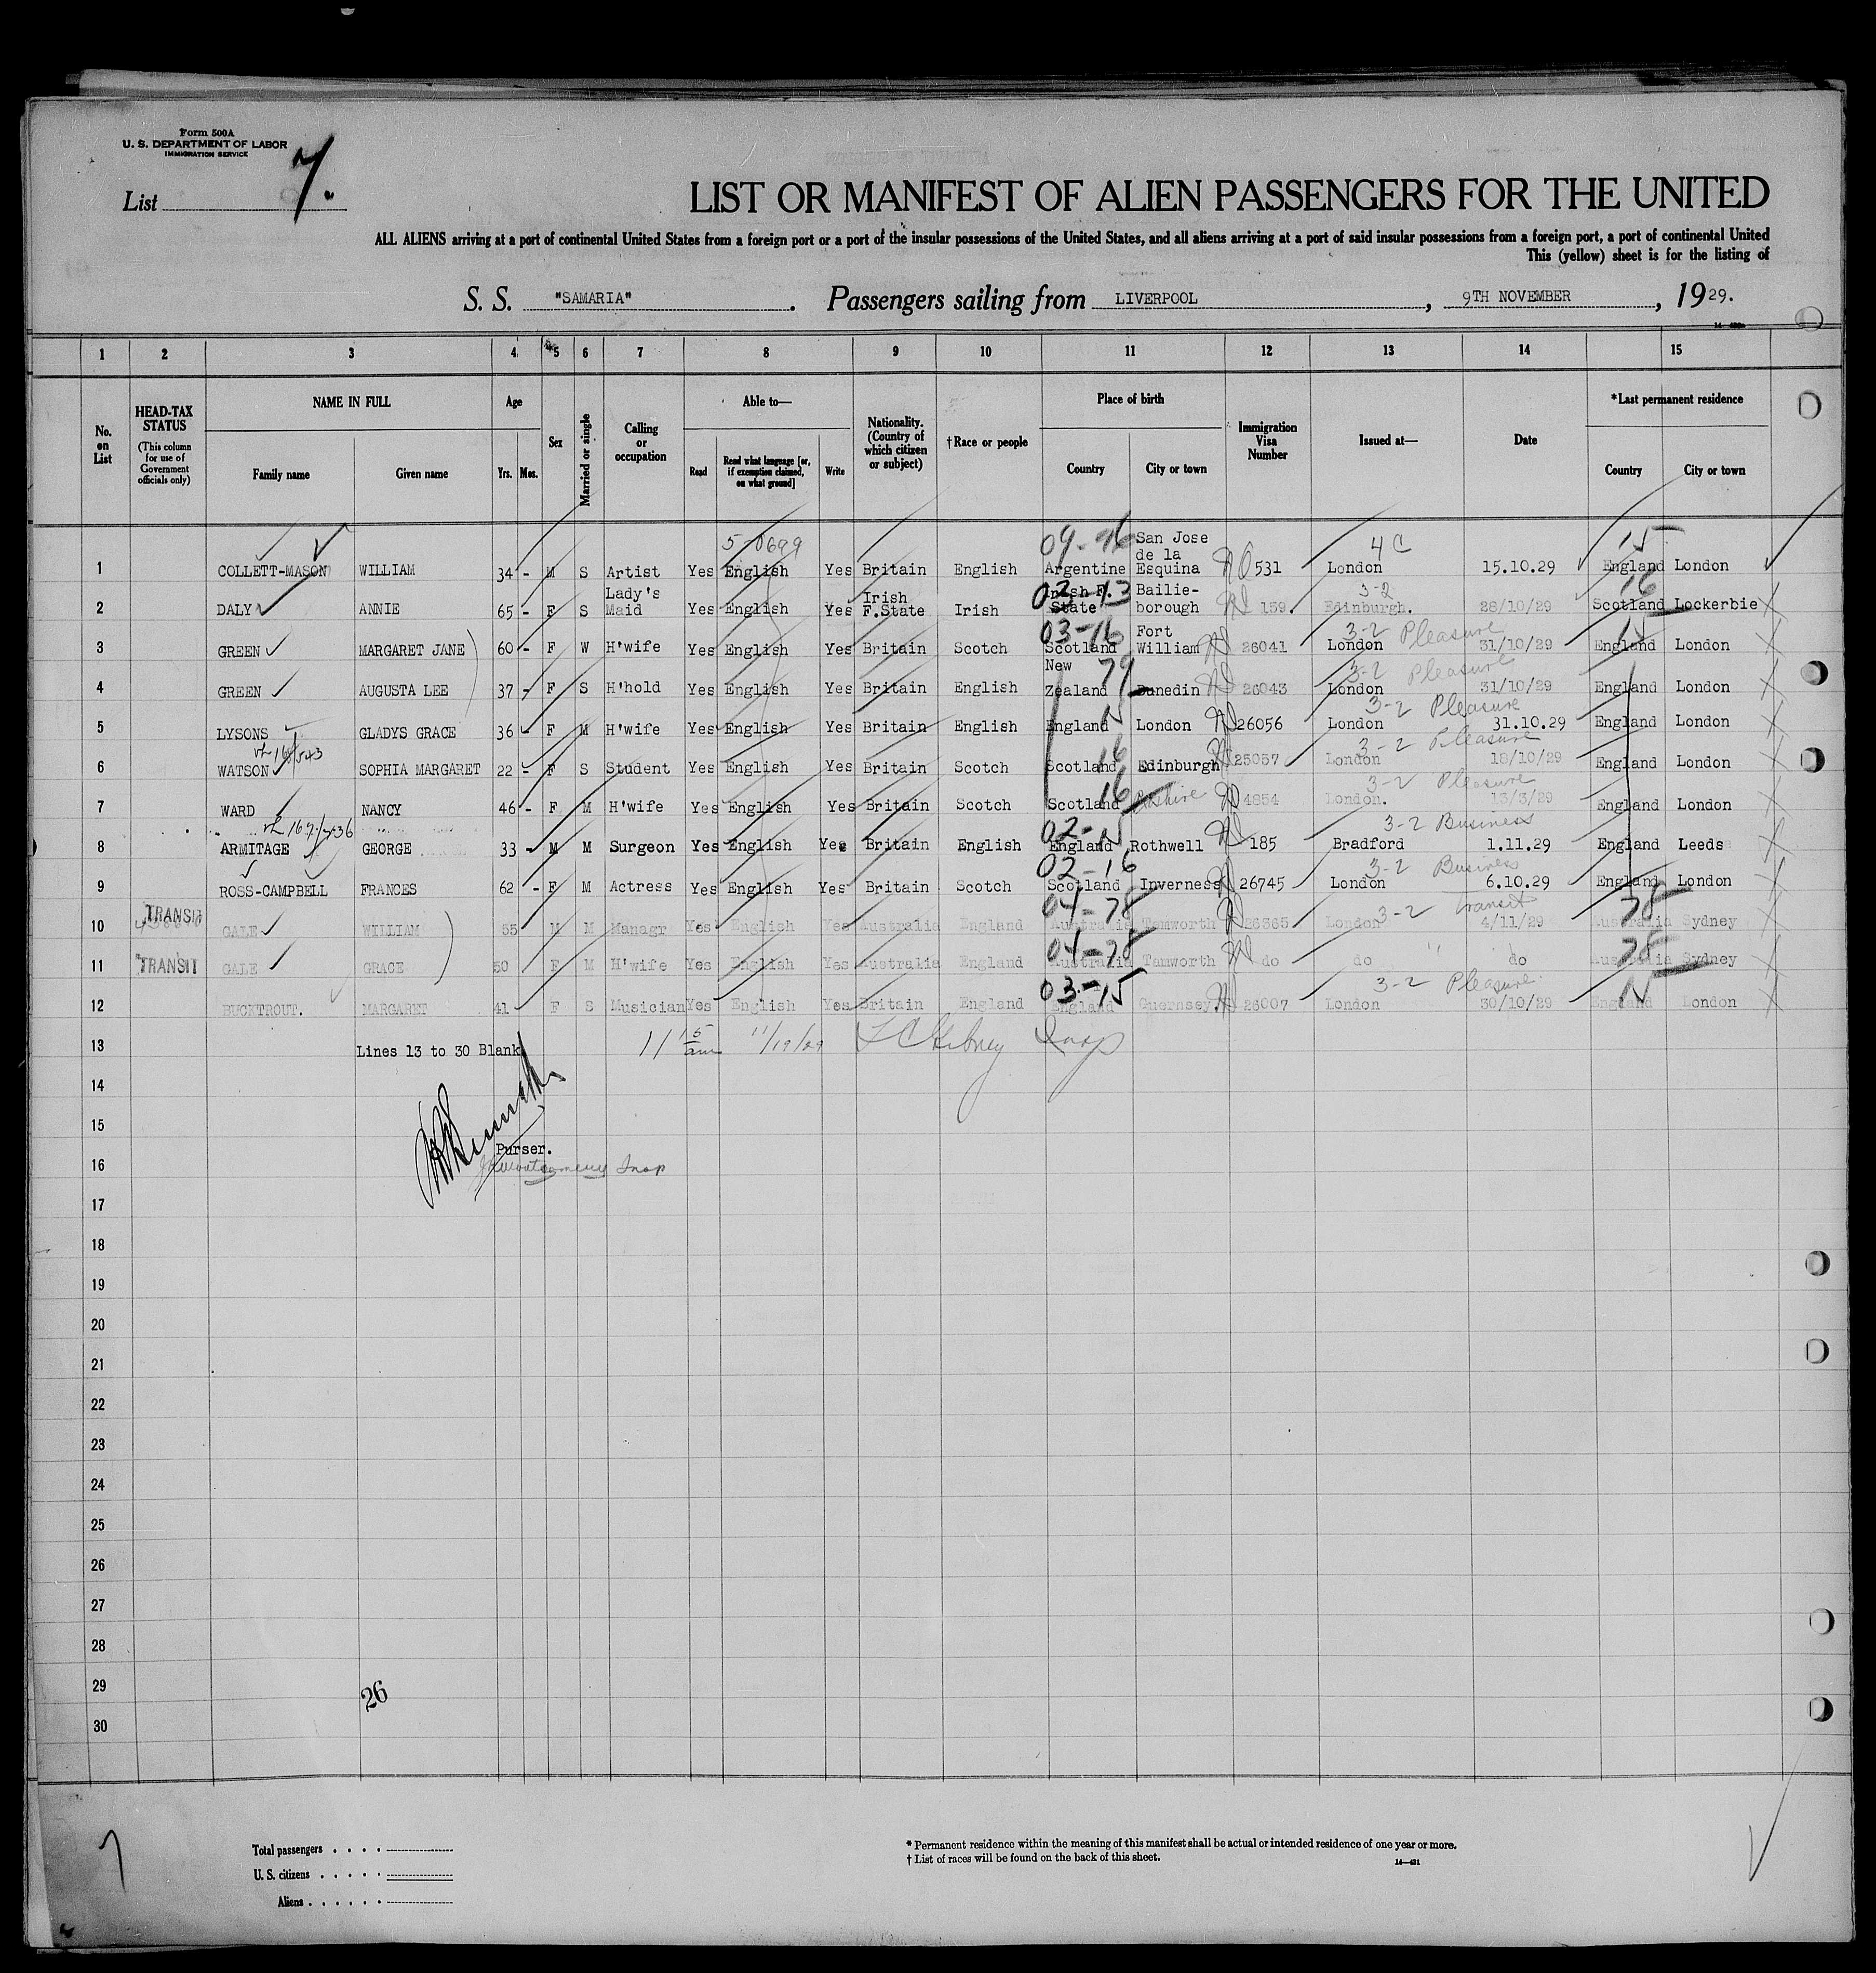 Form 500A
U. S. DEPARTMENT OF LABOR
IMMIGRATION SERVICE
List 7.
LIST OR MANIFEST OF ALIEN PASSENGERS FOR THE UNITED
ALL ALIENS arriving at a port of continental United States from a foreign port or a port of the insular possessions of the United States, and all aliens arriving at a port of said insular possessions from a foreign port, a port of continental United
This (yellow) sheet is for the listing of
S. S. "SAMARIA". Passengers sailing from LIVERPOOL, 9TH NOVEMBER, 1929.
1 2 3 4 5 6 7 8 9 10 11 12 13 14 15
No. on List
HEAD-TAX STATUS (This column for use of Government officials only)
NAME IN FULL
Family name Given name
Age
Yrs. Mos.
Sex
Married or single
Calling or occupation
Able to—
Read Read what language [or, if exemption claimed, on what ground] Write
Nationality. (Country of which citizen or subject)
†Race or people
Place of birth
Country City or town
Immigration Visa Number
Issued at—
Date
*Last permanent residence
Country City or town
5-0699 09-76 4C 15
1 COLLETT-MASON WILLIAM 34 - M S Artist Yes English Yes Britain English Argentine San Jose de la Esquina 531 London 15.10.29 England London
03-13 3-2 16
2 DALY ANNIE 65 - F S Lady's Maid Yes English Yes Irish F.State Irish Irish F. State Bailie-borough 159. Edinburgh. 28/10/29 Scotland Lockerbie
03-16 3-2 Pleasure 15
3 GREEN MARGARET JANE 60 - F W H'wife Yes English Yes Britain Scotch Scotland Fort William 26041 London 31/10/29 England London
79 3-2 Pleasure
4 GREEN AUGUSTA LEE 37 - F S H'hold Yes English Yes Britain English New Zealand Dunedin 26043 London 31/10/29 England London
15 3-2 Pleasure
5 LYSONS GLADYS GRACE 36 - F M H'wife Yes English Yes Britain English England London 26056 London 31.10.29 England London
16 3-2 Pleasure
6 WATSON SOPHIA MARGARET 22 - F S Student Yes English Yes Britain Scotch Scotland Edinburgh 25057 London 18/10/29 England London
16 3-2 Pleasure
7 WARD NANCY 46 - F M H'wife Yes English Yes Britain Scotch Scotland 4854 London. 13/3/29 England London
02-15 3-2 Business
8 ARMITAGE GEORGE 33 - M M Surgeon Yes English Yes Britain English England Rothwell 185 Bradford 1.11.29 England Leeds
02-16 3-2 Business
9 ROSS-CAMPBELL FRANCES 62 - F M Actress Yes English Yes Britain Scotch Scotland Inverness 26745 London 6.10.29 England London
TRANSIT 04-78 3-2 transit 78
10 GALE WILLIAM 55 M M Managr Yes English Yes Australia England Australia Tamworth 26365 London 4/11/29 Australia Sydney
04-78 " 78
11 TRANSIT GALE GRACE 50 F M H'wife Yes English Yes Australia England Australia Tamworth do do do Australia Sydney
03-15 3-2 Pleasure 15
12 BUCKTROUT. MARGARET 41 F S Musician Yes English Yes Britain England England Guernsey. 26007 London 30/10/29 England London
13 Lines 13 to 30 Blank 11 15 am 11/19/29 Insp
14
15
Purser.
16 Montgomery Insp
17
18
19
20
21
22
23
24
25
26
27
28
29 26
30
7
Total passengers
U. S. citizens
Aliens
* Permanent residence within the meaning of this manifest shall be actual or intended residence of one year or more.
† List of races will be found on the back of this sheet.
14—431